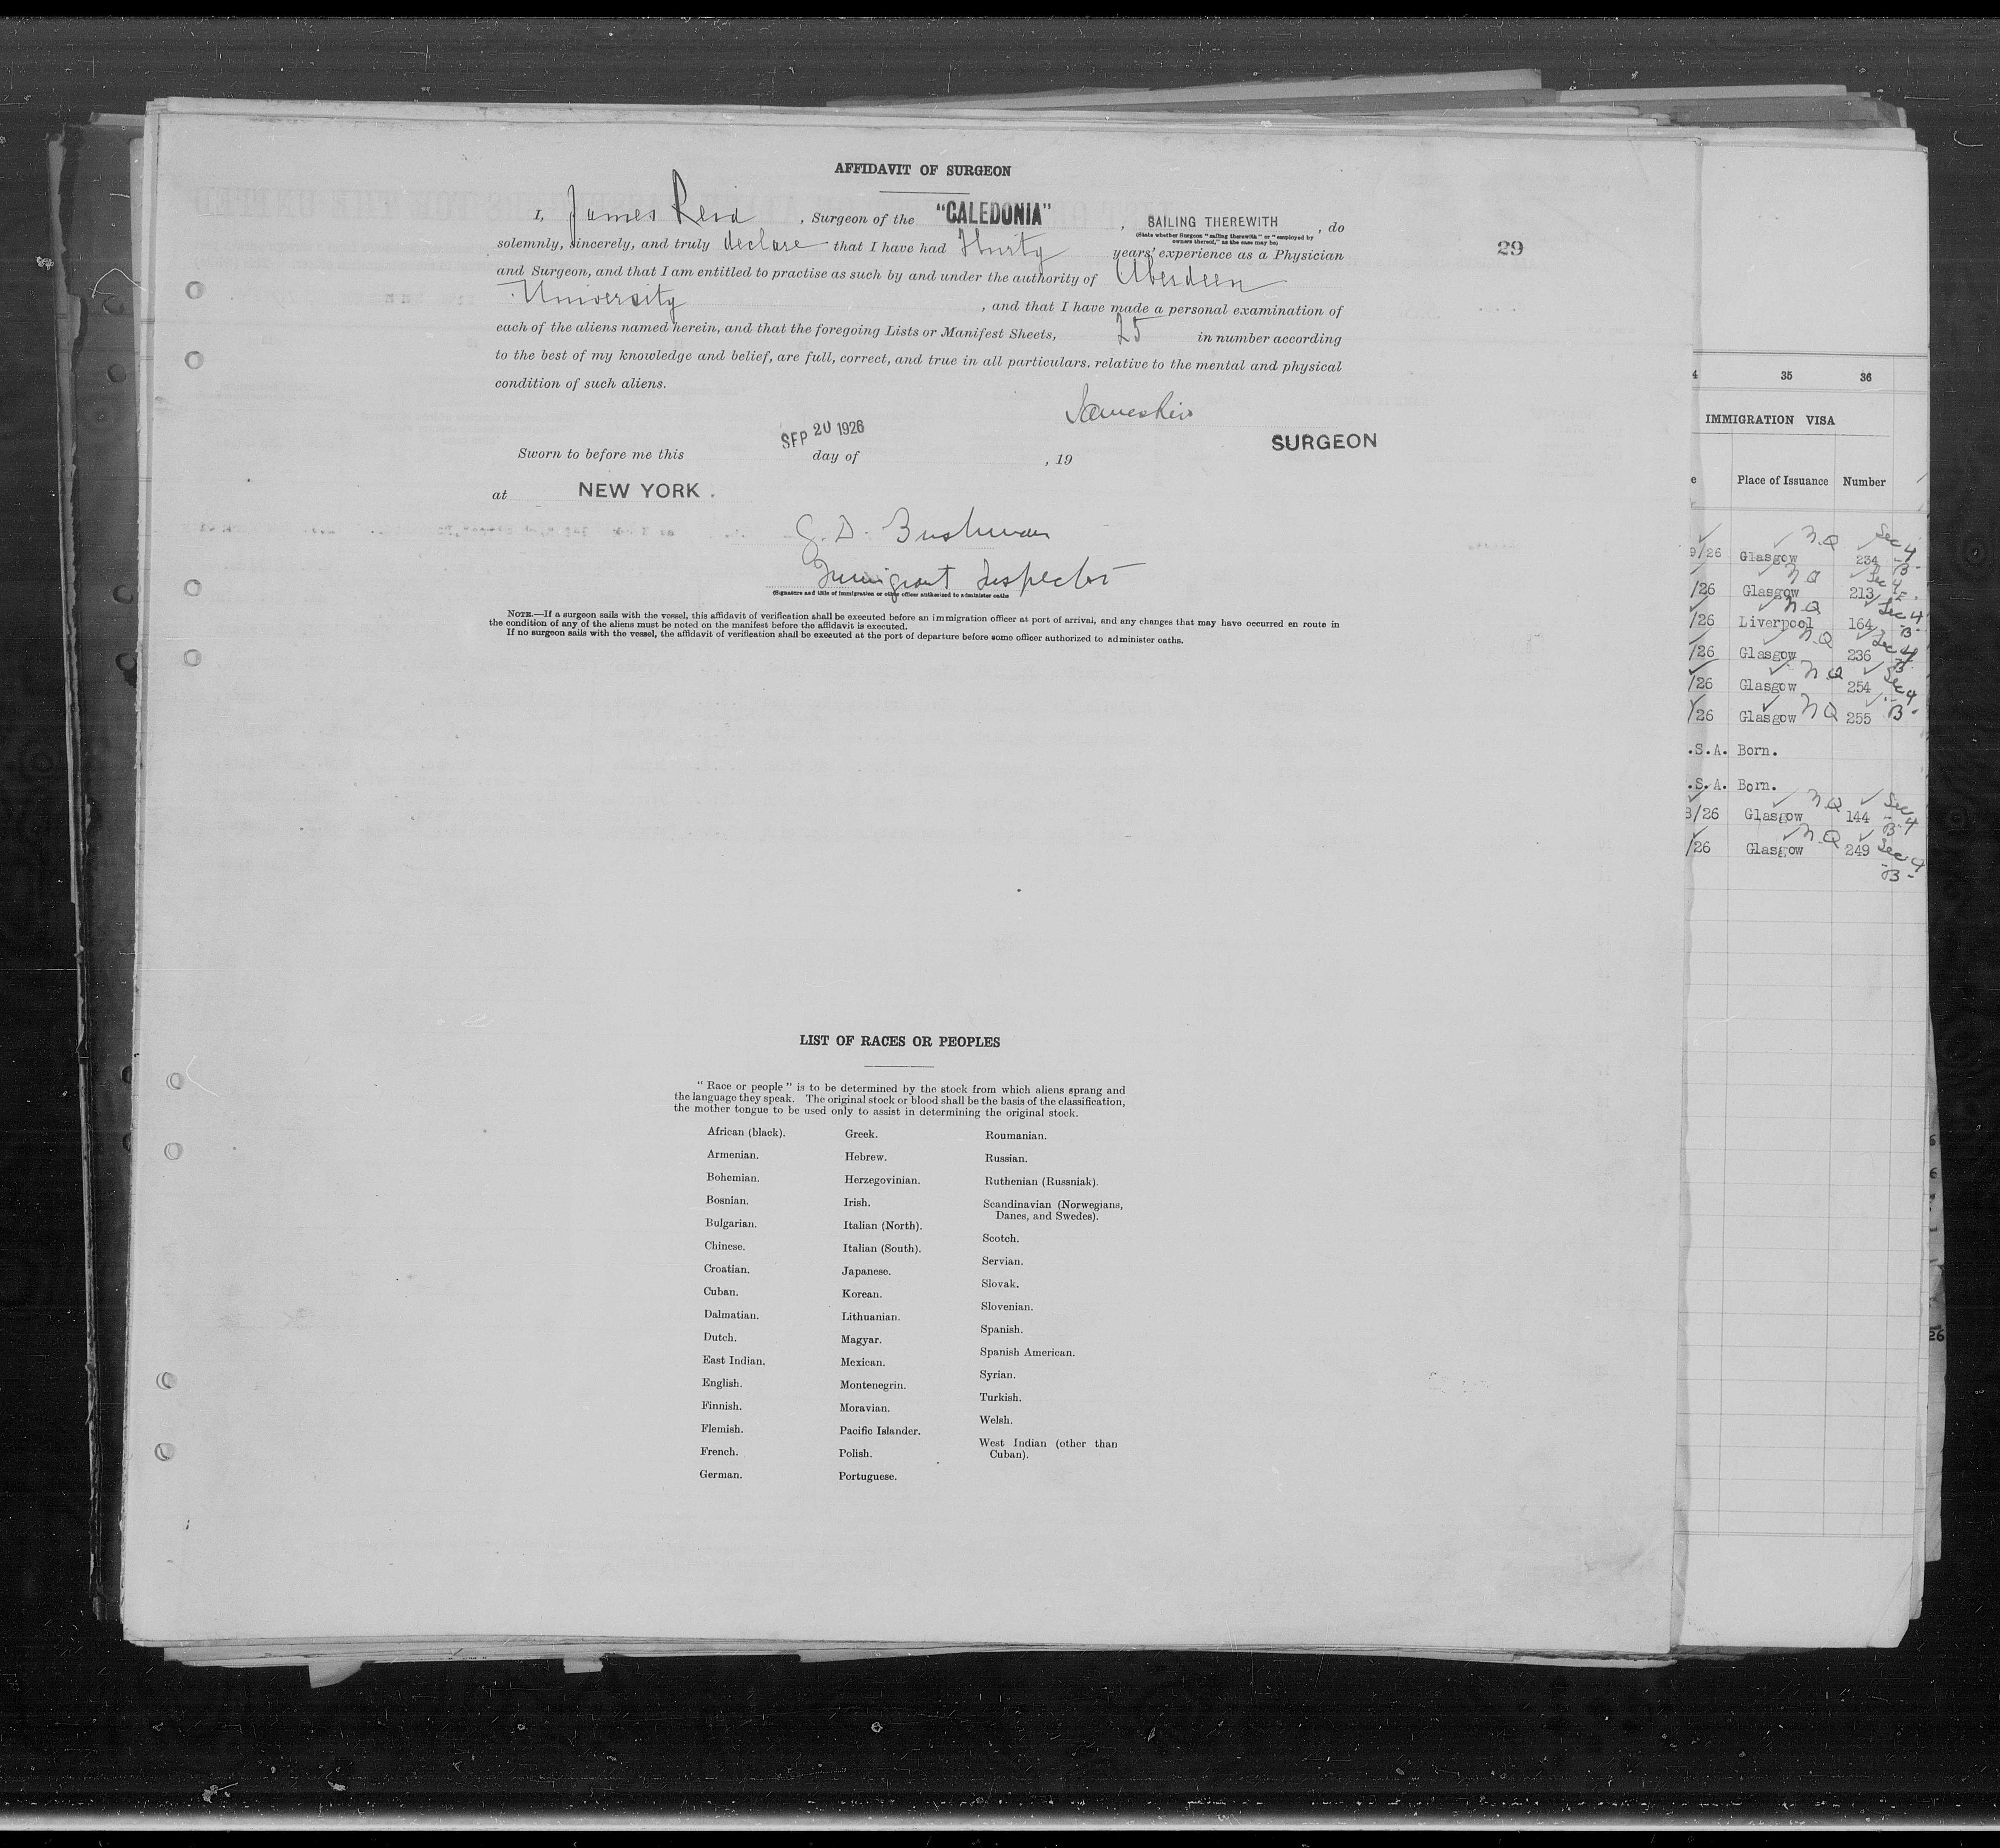 AFFIDAVIT OF SURGEON
I, James Reid, Surgeon of the "CALEDONIA", SAILING THEREWITH, do
(State whether Surgeon "sailing therewith" or "employed by
owners thereof," as the case may be)
29
solemnly, sincerely, and truly declare that I have had Thirty years' experience as a Physician
and Surgeon, and that I am entitled to practise as such by and under the authority of Aberdeen
University, and that I have made a personal examination of
each of the aliens named herein, and that the foregoing Lists or Manifest Sheets, 25 in number according
to the best of my knowledge and belief, are full, correct, and true in all particulars. relative to the mental and physical
condition of such aliens.
James Reid
SURGEON
SEP 20 1926
Sworn to before me this day of , 19
at NEW YORK.
G. D. Bushman
Immigrant Inspector
(Signature and title of immigration or other officer authorized to administer oaths
NOTE.—If a surgeon sails with the vessel, this affidavit of verification shall be executed before an immigration officer at port of arrival, and any changes that may have occurred en route in
the condition of any of the aliens must be noted on the manifest before the affidavit is executed.
If no surgeon sails with the vessel, the affidavit of verification shall be executed at the port of departure before some officer authorized to administer oaths.
LIST OF RACES OR PEOPLES
"Race or people" is to be determined by the stock from which aliens sprang and
the language they speak. The original stock or blood shall be the basis of the classification,
the mother tongue to be used only to assist in determining the original stock.
African (black).
Armenian.
Bohemian.
Bosnian.
Bulgarian.
Chinese.
Croatian.
Cuban.
Dalmatian.
Dutch.
East Indian.
English.
Finnish.
Flemish.
French.
German.
Greek.
Hebrew.
Herzegovinian.
Irish.
Italian (North).
Italian (South).
Japanese.
Korean.
Lithuanian.
Magyar.
Mexican.
Montenegrin.
Moravian.
Pacific Islander.
Polish.
Portuguese.
Roumanian.
Russian.
Ruthenian (Russniak).
Scandinavian (Norwegians,
Danes, and Swedes).
Scotch.
Servian.
Slovak.
Slovenian.
Spanish.
Spanish American.
Syrian.
Turkish.
Welsh.
West Indian (other than
Cuban).
4 35 36
IMMIGRATION VISA
e Place of Issuance Number
9/26 Glasgow N.Q 234 Sec 4 -B-
/26 Glasgow N Q 213 Sec 4
/26 Liverpool N Q 164 Sec 4 -B-
/26 Glasgow N.Q 236 Sec 4 B
/26 Glasgow N.Q 254 Sec 4
/26 Glasgow N Q 255 -B-
.S.A. Born.
.S.A. Born.
8/26 Glasgow N.Q 144 Sec 4 -B-
/26 Glasgow N.Q 249 Sec 4
-B-
26